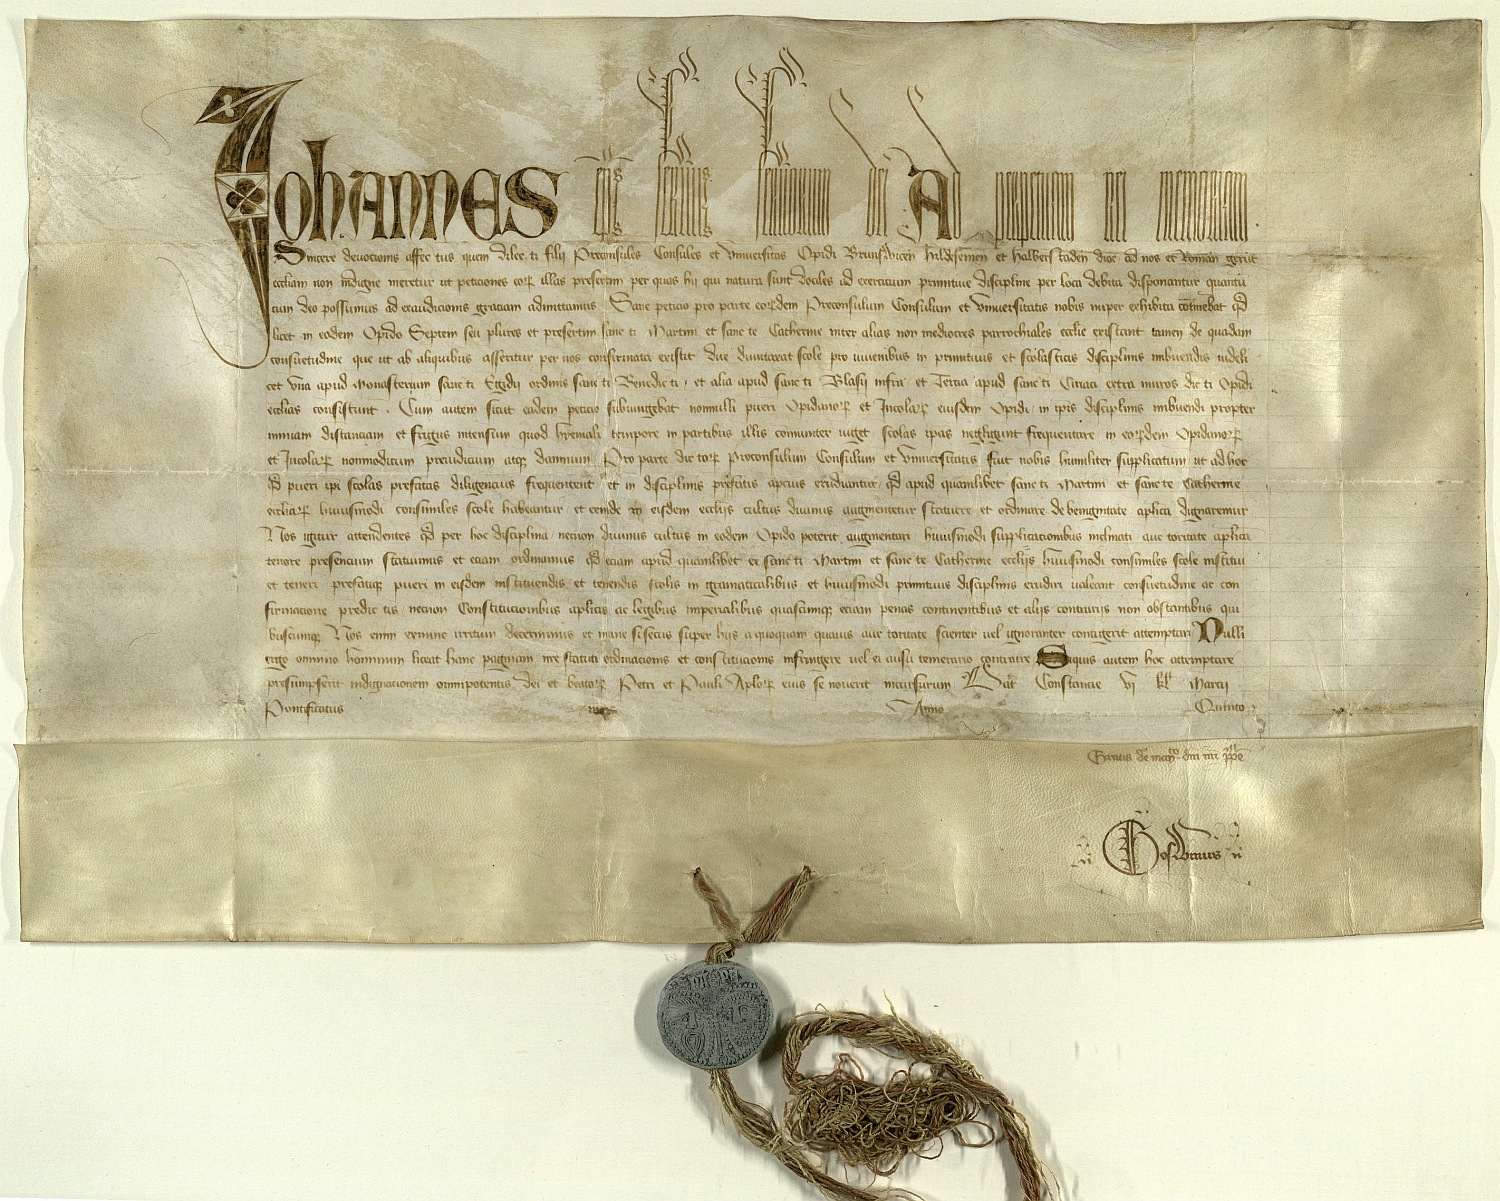 Johannes ep̄s seruus seruorum dei Ad perpetuam rei memoriam
Sincere deuocionis affectus quem dilecti filij Preconsules Consules et Vniuersitas Opidi Brunswicen̄ hildesemen̄ et halberstaden̄ dioc̄ ad nos et Roman̄ gerūt
eccliam non indigne meretur ut peticiones eoꝝ illas presertim per quas hij qui natura sunt dociles ad exercicium primitiue discipline per loca debita disponantur quantū
cum deo possumus ad exaudicionis graciam admittamus Sane peticio pro parte eoꝝdem Preconsulum Consulum et Vniuersitatis nobis nuper exhibita cōtinebat qd̄
licet in eodem Opido Septem seu plures et presertim sancti Martini et sancte Catherine inter alias non mediocres parrochiales ecclie existant tamen de quadam
consuetudine que ut ab aliquibus asseritur per nos confirmata existit due dumtaxat scole pro iuuenibus in primitiuis et scolasticis disciplinis imbuendis uideli
cet vna apud Monasterium sancti Egidij ordinis sancti Benedicti et alia apud sancti Blasij infra et Tercia apud sancti Ciriaci extra muros dicti Opidi
ecclias consistunt Cum autem sicut eadem peticio subiungebat nonnulli pueri Opidanoꝝ et Incolaꝝ eiusdem Opidi in ip̄is disciplinis imbuendi propter
nimiam distanciam et frigus intensum quod hyemali tempore in partibus illis comuniter uiget scolas ip̄as negligunt frequentare in eoꝝdem Opidanoꝝ
et Incolaꝝ nonmodicum preiudicium atqꝫ dampnum Pro parte dictoꝝ Preconsulum Consulum et Vniuersitatis fuit nobis humiliter supplicatum ut ad hoc
qd̄ pueri ip̄i scolas prefatas diligencius frequentent et in disciplinis prefatis apcius erudiantur qd̄ apud quamlibet sancti Martini et sancte Catherine
eccliaꝝ huiusmodi consimiles scole habeantur et eciam in eisdem ecclijs cultus diuinus augmentetur statuere et ordinare de benignitate aplica dignaremur
Nos igitur attendentes qd̄ per hoc disciplina necnon diuinus cultus in eodem Opido poterit augmentari huiusmodi supplicacionibus inclinati auctoritate aplica
tenore presencium statuimus et eciam ordinamus qd̄ eciam apud quamlibet ex sancti Martini et sancte Catherine ecclijs huiusmodi consimiles scole institui
et teneri prefatiqꝫ pueri in eisdem instituendis et tenendis scolis in gramaticalibus et huiusmodi primitiuis disciplinis erudiri ualeant consuetudine ac con
firmacione predictis necnon Constitucionibus aplicis ac legibus imperialibus quascumqꝫ eciam penas continentibus et alijs contrarijs non obstantibus qui
buscumqꝫ Nos enim exnunc irritum decernimus et inane si secus super hijs a quoquam quauis auctoritate scienter uel ignoranter contigerit attemptari Nulli
ergo omnino hominum liceat hanc paginam nr̄e statuti ordinacionis et constitucionis infringere uel ei ausu temerario contraire Siquis autem hoc attemptare
presumpserit indignacionem omnipotentis dei et beatoꝝ Petri et Pauli Aploꝝ eius se nouerit incursurum Dat̄ Constancie vj kl̄ Marcij
Pontificatus nr̄i Anno Quinto
Gratis de man̄to dn̄i nr̄i pp̄e